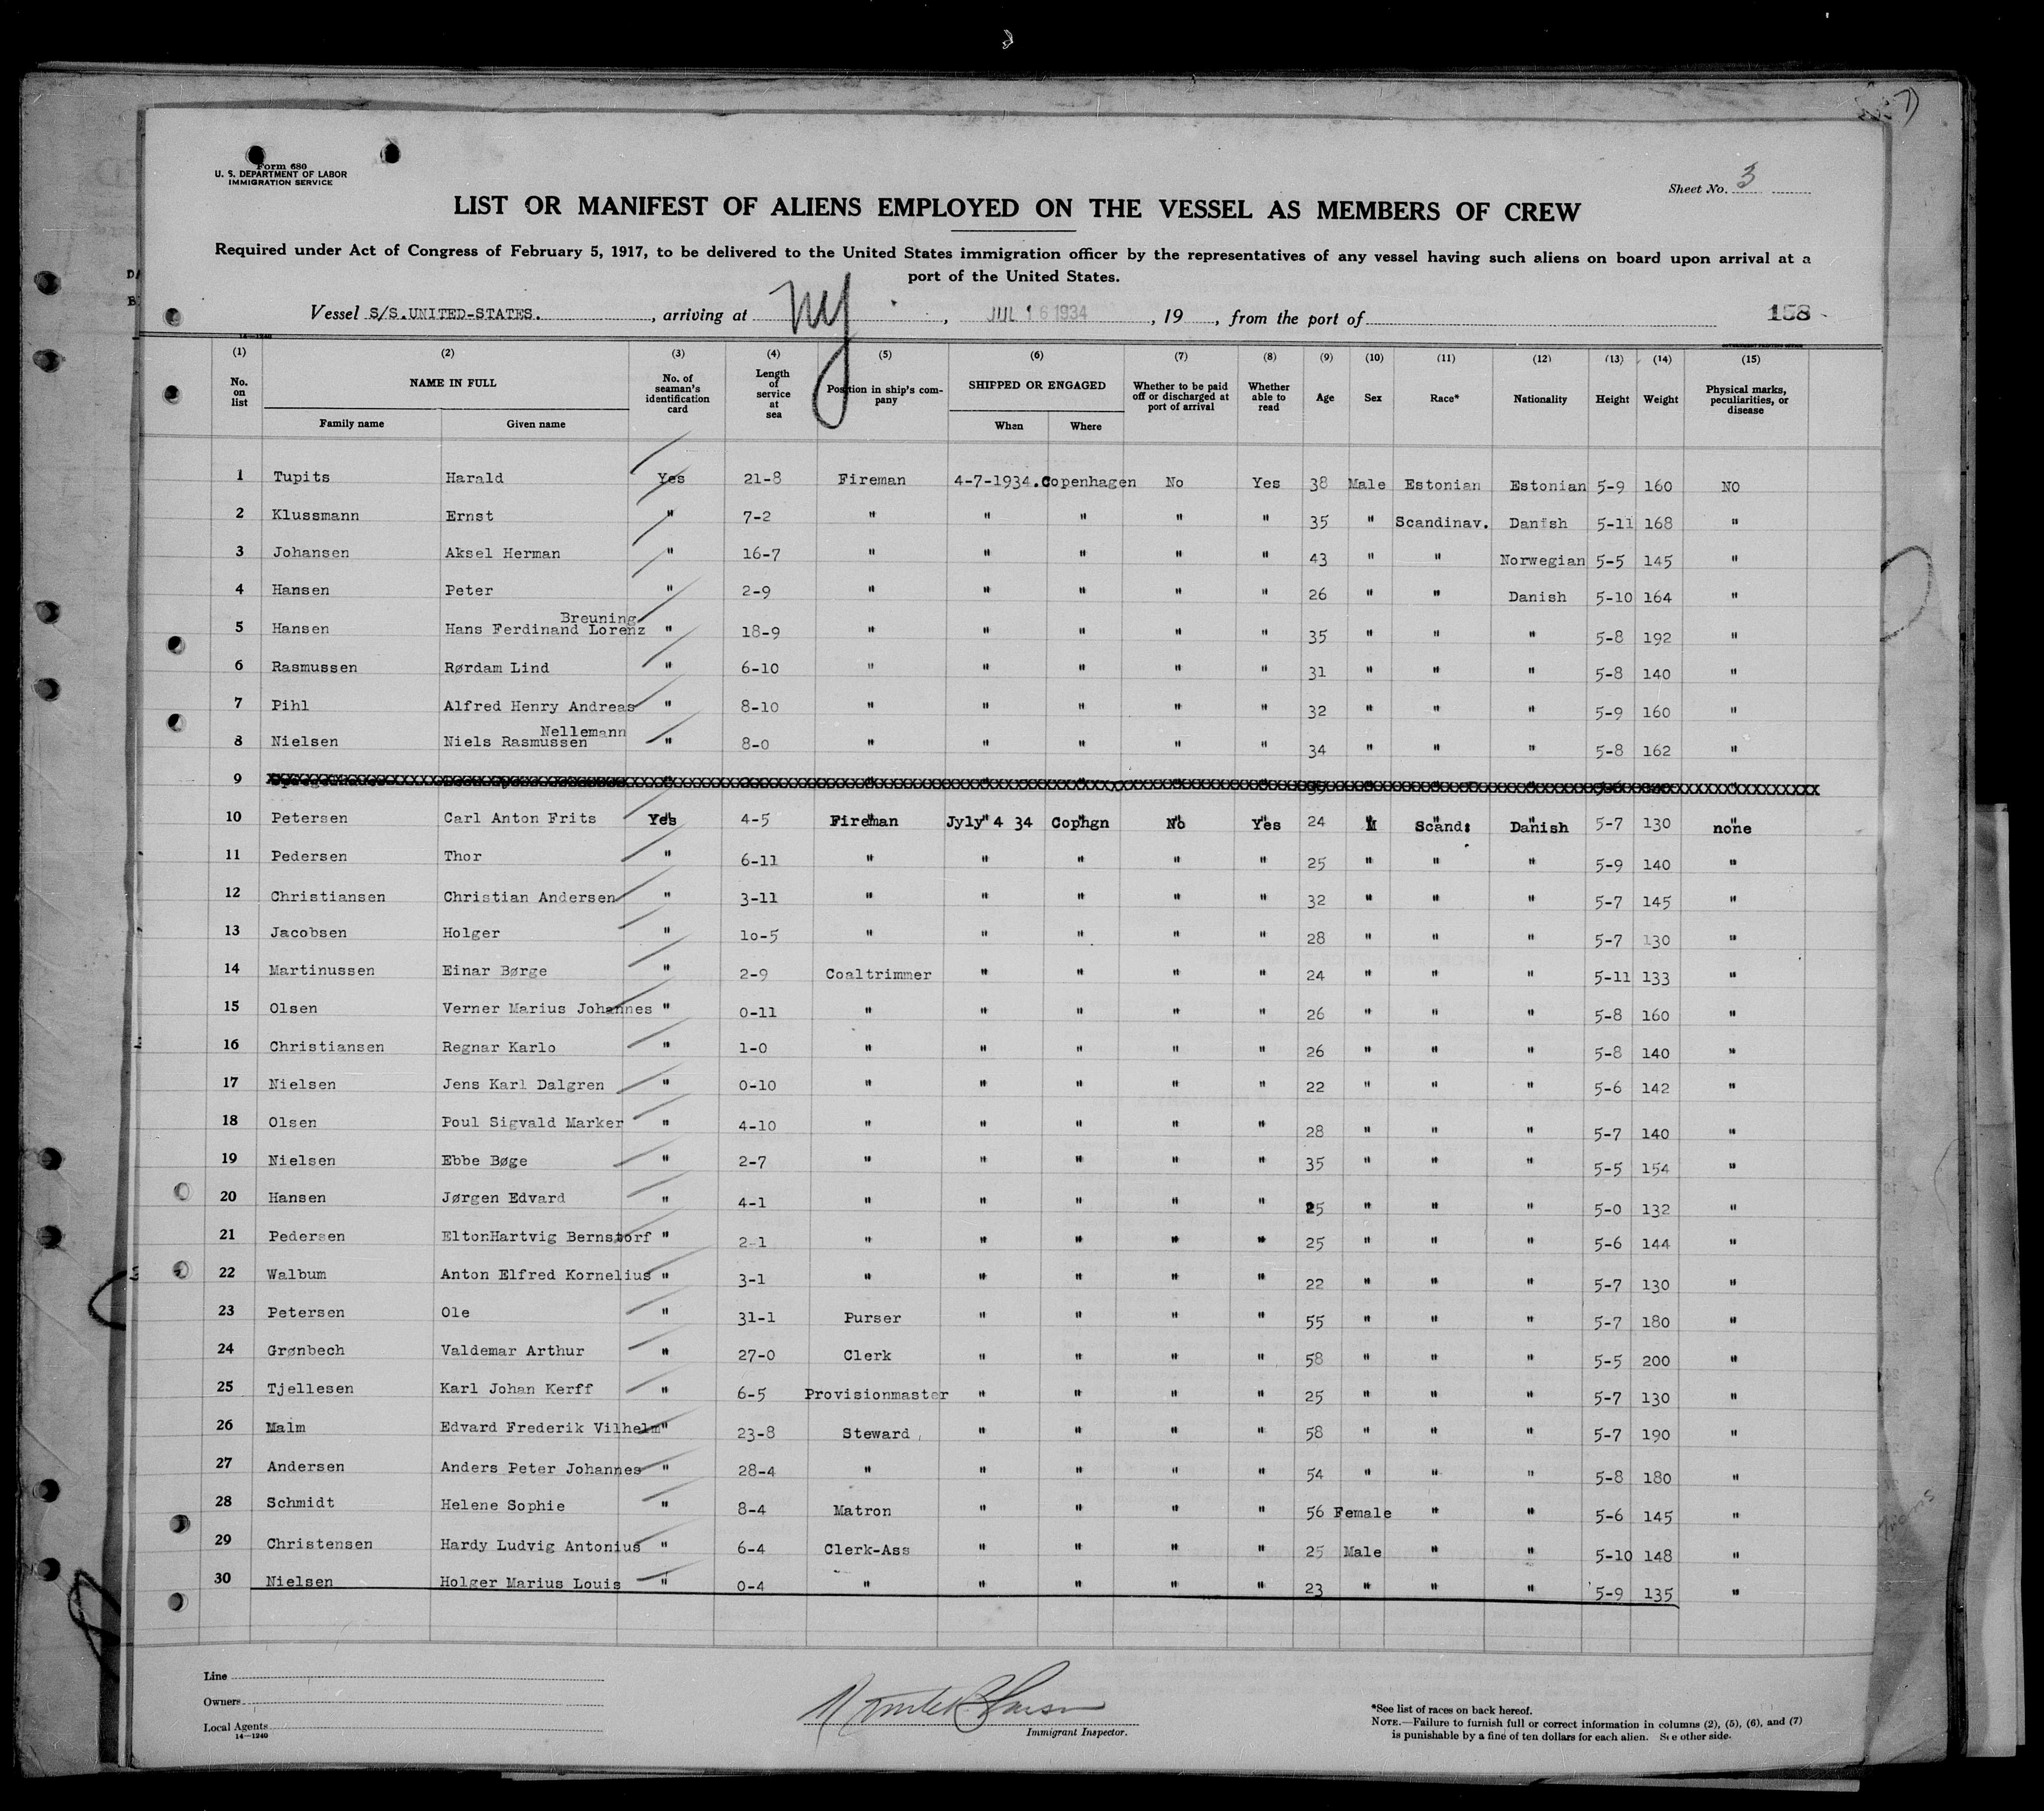 Form 680
U. S. DEPARTMENT OF LABOR
IMMIGRATION SERVICE
Sheet No. 3
LIST OR MANIFEST OF ALIENS EMPLOYED ON THE VESSEL AS MEMBERS OF CREW
Required under Act of Congress of February 5, 1917, to be delivered to the United States immigration officer by the representatives of any vessel having such aliens on board upon arrival at a
port of the United States.
Vessel S/S.UNITED-STATES. , arriving at NY , JUL 16 1934 , 19 , from the port of 158
14—1240
(1) (2) (3) (4) (5) (6) (7) (8) (9) (10) (11) (12) (13) (14) (15)
No. on list NAME IN FULL Family name Given name No. of seaman's identification card Length of service at sea Position in ship's company SHIPPED OR ENGAGED When Where Whether to be paid off or discharged at port of arrival Whether able to read Age Sex Race* Nationality Height Weight Physical marks, peculiarities, or disease
1 Tupits Harald Yes 21-8 Fireman 4-7-1934. Copenhagen No Yes 38 Male Estonian Estonian 5-9 160 NO
2 Klussmann Ernst " 7-2 " " " " " 35 " Scandinav. Danish 5-11 168 "
3 Johansen Aksel Herman " 16-7 " " " " " 43 " " Norwegian 5-5 145 "
4 Hansen Peter " 2-9 " " " " " 26 " " Danish 5-10 164 "
Breuning
5 Hansen Hans Ferdinand Lorenz " 18-9 " " " " " 35 " " " 5-8 192 "
6 Rasmussen Rørdam Lind " 6-10 " " " " " 31 " " " 5-8 140 "
7 Pihl Alfred Henry Andreas " 8-10 " " " " " 32 " " " 5-9 160 "
Nellemann
8 Nielsen Niels Rasmussen " 8-0 " " " " " 34 " " " 5-8 162 "
9
10 Petersen Carl Anton Frits Yes 4-5 Fireman Jyly 4 34 Cophgn No Yes 24 M Scand: Danish 5-7 130 none
11 Pedersen Thor " 6-11 " " " " " 25 " " " 5-9 140 "
12 Christiansen Christian Andersen " 3-11 " " " " " 32 " " " 5-7 145 "
13 Jacobsen Holger " 10-5 " " " " " 28 " " " 5-7 130 "
14 Martinussen Einar Børge " 2-9 Coaltrimmer " " " " 24 " " " 5-11 133 "
15 Olsen Verner Marius Johannes " 0-11 " " " " " 26 " " " 5-8 160 "
16 Christiansen Regnar Karlo " 1-0 " " " " " 26 " " " 5-8 140 "
17 Nielsen Jens Karl Dalgren " 0-10 " " " " " 22 " " " 5-6 142 "
18 Olsen Poul Sigvald Marker " 4-10 " " " " " 28 " " " 5-7 140 "
19 Nielsen Ebbe Bøge " 2-7 " " " " " 35 " " " 5-5 154 "
20 Hansen Jørgen Edvard " 4-1 " " " " " 25 " " " 5-0 132 "
21 Pedersen EltonHartvig Bernstorf " 2-1 " " " " " 25 " " " 5-6 144 "
22 Walbum Anton Elfred Kornelius " 3-1 " " " " " 22 " " " 5-7 130 "
23 Petersen Ole " 31-1 Purser " " " " 55 " " " 5-7 180 "
24 Grønbech Valdemar Arthur " 27-0 Clerk " " " " 58 " " " 5-5 200 "
25 Tjellesen Karl Johan Kerff " 6-5 Provisionmaster " " " " 25 " " " 5-7 130 "
26 Malm Edvard Frederik Vilhelm " 23-8 Steward " " " " 58 " " " 5-7 190 "
27 Andersen Anders Peter Johannes " 28-4 " " " " " 54 " " " 5-8 180 "
28 Schmidt Helene Sophie " 8-4 Matron " " " " 56 Female " " 5-6 145 "
29 Christensen Hardy Ludvig Antonius " 6-4 Clerk-Ass " " " " 25 Male " " 5-10 148 "
30 Nielsen Holger Marius Louis " 0-4 " " " " " 23 " " " 5-9 135 "
Line
Owners
Local Agents
14—1240
Immigrant Inspector.
*See list of races on back hereof.
NOTE.—Failure to furnish full or correct information in columns (2), (5), (6), and (7)
is punishable by a fine of ten dollars for each alien. See other side.